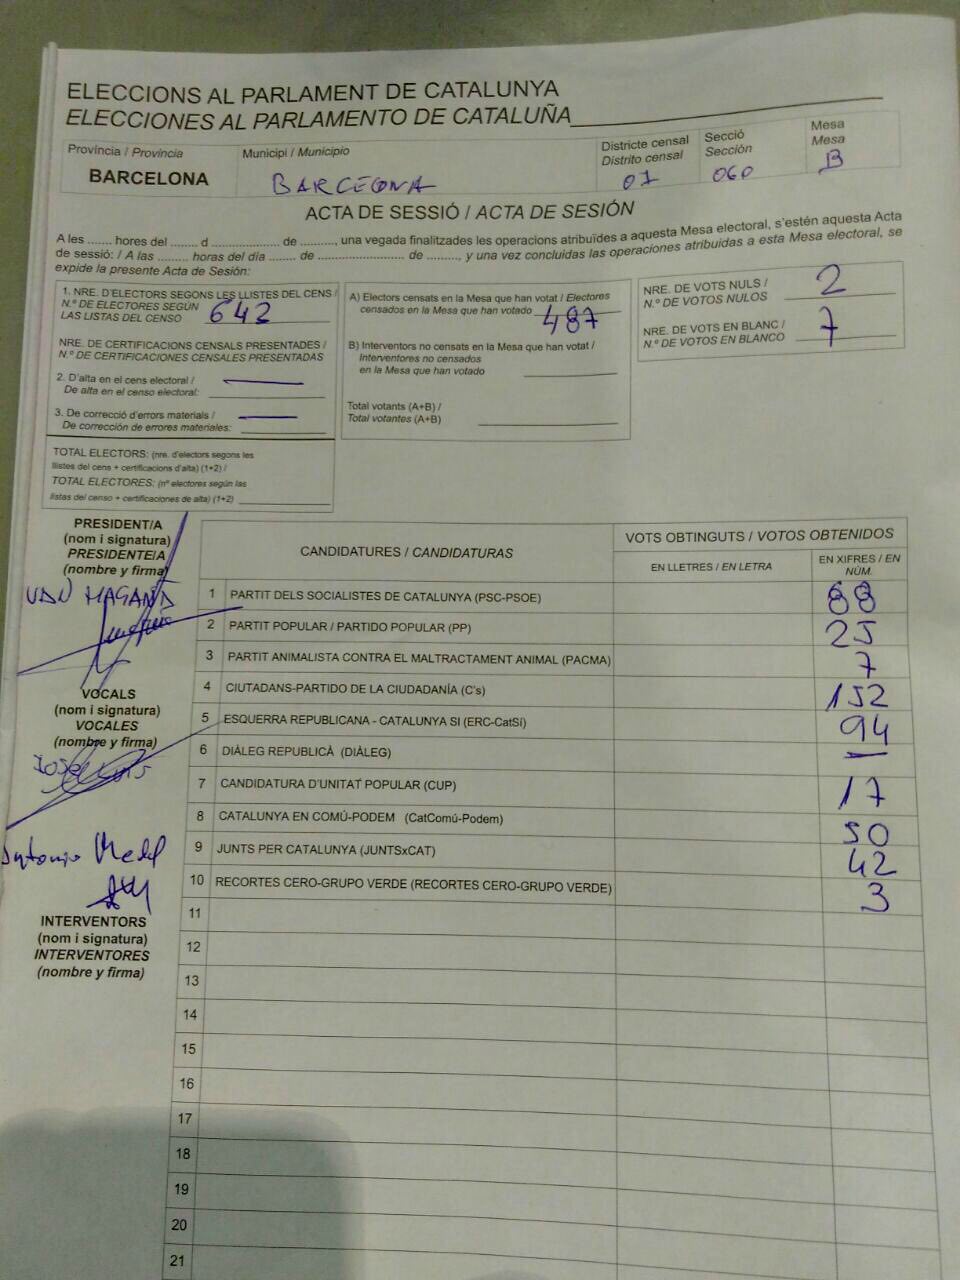 ELECCIONS AL PARLAMENT DE CATALUNYA
ELECCIONES AL PARLAMENTO DE CATALUÑA
Província / Provincia
BARCELONA
Municipi / Municipio
BARCELONA
Districte censal
Distrito censal
01
Secció
Sección
060
Mesa
Mesa
B
ACTA DE SESSIÓ / ACTA DE SESIÓN
A les ....... hores del ....... d .................. de .........., una vegada finalitzades les operacions atribuïdes a aquesta Mesa electoral, s'estén aquesta Acta
de sessió: / A las ........ horas del día ....... de ...................... de ........, y una vez concluidas las operaciones atribuidas a esta Mesa electoral, se
expide la presente Acta de Sesión:
1. NRE. D'ELECTORS SEGONS LES LLISTES DEL CENS /
N.º DE ELECTORES SEGÚN
LAS LISTAS DEL CENSO 642
NRE. DE CERTIFICACIONS CENSALS PRESENTADES /
N.º DE CERTIFICACIONES CENSALES PRESENTADAS
2. D'alta en el cens electoral /
De alta en el censo electoral:
3. De correcció d'errors materials /
De corrección de errores materiales:
TOTAL ELECTORS: (nre. d'electors segons les
llistes del cens + certificacions d'alta) (1+2) /
TOTAL ELECTORES: (nº electores según las
listas del censo + certificaciones de alta) (1+2)
A) Electors censats en la Mesa que han votat / Electores
censados en la Mesa que han votado 487
B) Interventors no censats en la Mesa que han votat /
Interventores no censados
en la Mesa que han votado
Total votants (A+B) /
Total votantes (A+B)
NRE. DE VOTS NULS /
N.º DE VOTOS NULOS 2
NRE. DE VOTS EN BLANC /
N.º DE VOTOS EN BLANCO 7
PRESIDENT/A
(nom i signatura)
PRESIDENTE/A
(nombre y firma)
VOCALS
(nom i signatura)
VOCALES
(nombre y firma)
Antonio
INTERVENTORS
(nom i signatura)
INTERVENTORES
(nombre y firma)
CANDIDATURES / CANDIDATURAS
VOTS OBTINGUTS / VOTOS OBTENIDOS
EN LLETRES / EN LETRA
EN XIFRES / EN
NÚM.
1 PARTIT DELS SOCIALISTES DE CATALUNYA (PSC-PSOE) 88
2 PARTIT POPULAR / PARTIDO POPULAR (PP) 25
3 PARTIT ANIMALISTA CONTRA EL MALTRACTAMENT ANIMAL (PACMA) 7
4 CIUTADANS-PARTIDO DE LA CIUDADANÍA (C's) 152
5 ESQUERRA REPUBLICANA - CATALUNYA SI (ERC-CatSí) 94
6 DIÀLEG REPUBLICÀ (DIÀLEG) —
7 CANDIDATURA D'UNITAT POPULAR (CUP) 17
8 CATALUNYA EN COMÚ-PODEM (CatComú-Podem) 50
9 JUNTS PER CATALUNYA (JUNTSxCAT) 42
10 RECORTES CERO-GRUPO VERDE (RECORTES CERO-GRUPO VERDE) 3
11
12
13
14
15
16
17
18
19
20
21